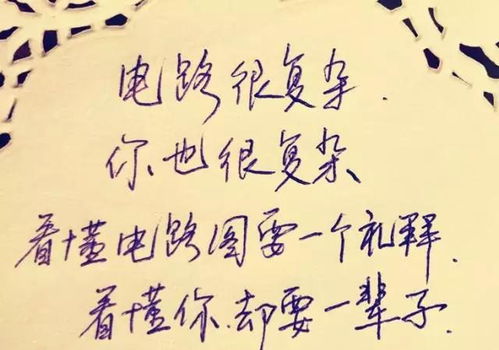 电路很复杂.
你也很复杂
看懂电路图要一个礼拜.
看懂你.却要一辈子.